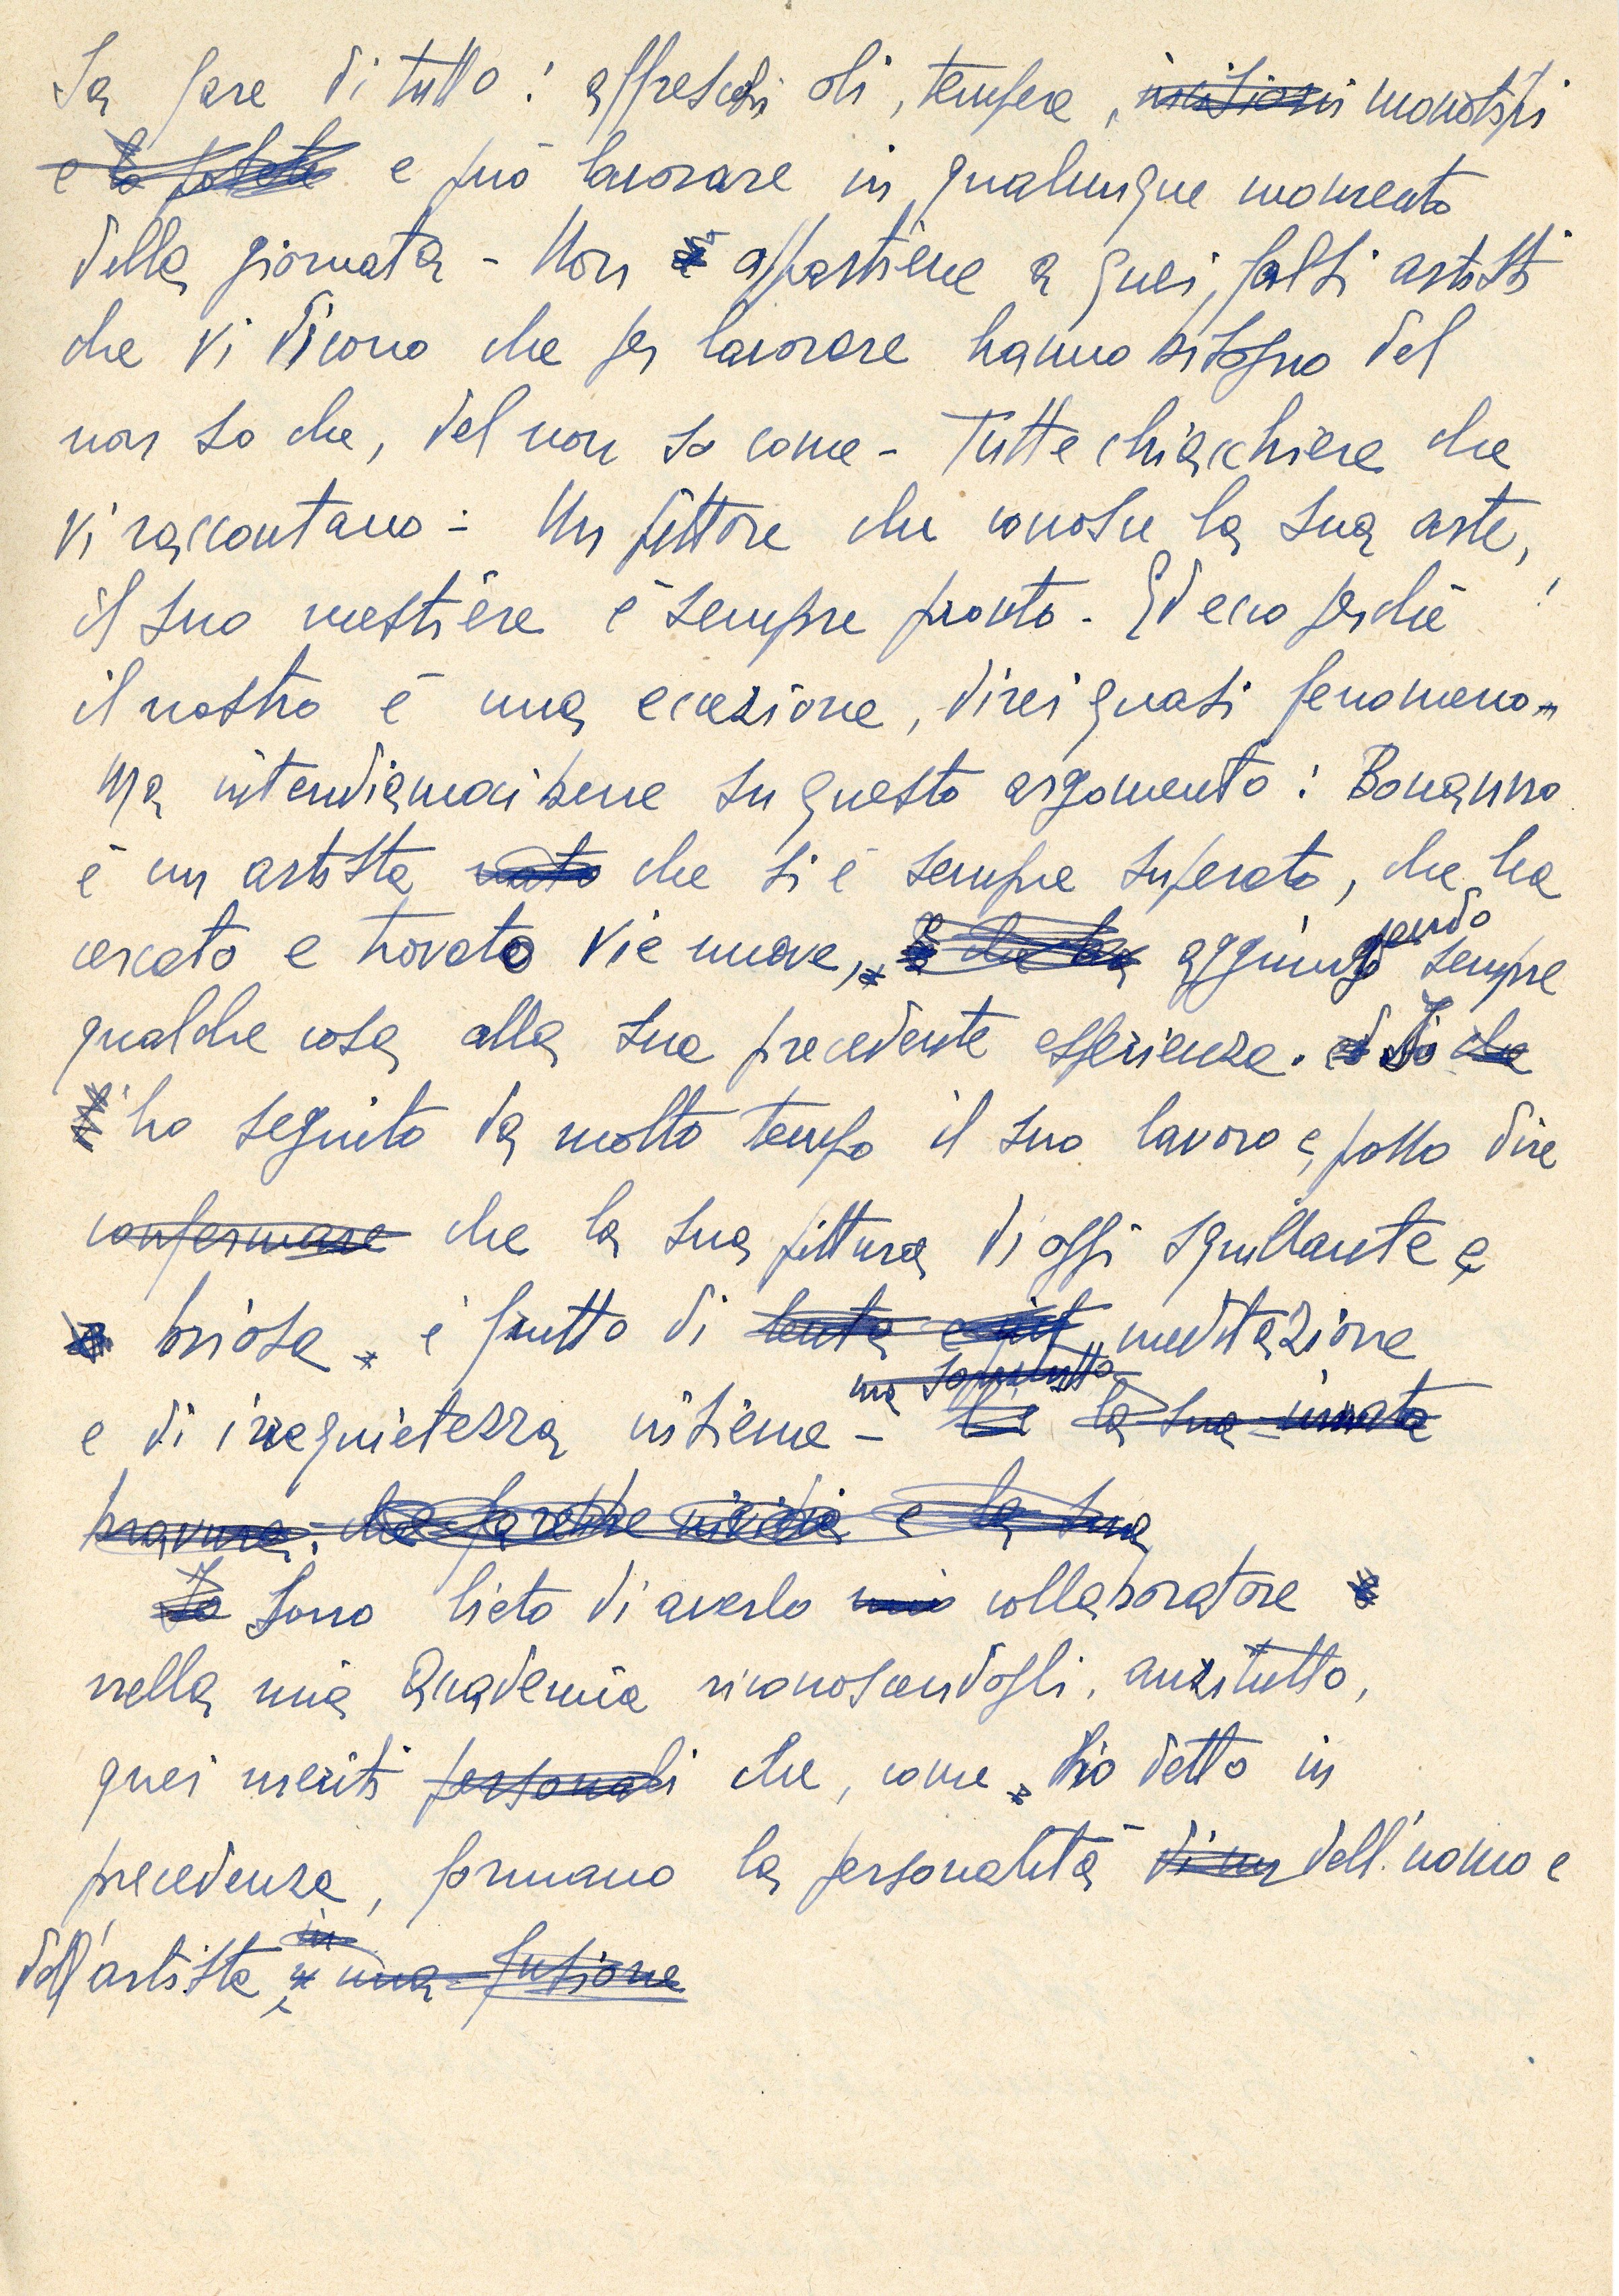 Sa fare di tutto: affreschi oli, tempere, incisioni monotipi
e può lavorare in qualunque momento
della giornata - Non appartiene a quei falsi artisti
che vi dicono che per lavorare hanno bisogno del
non so che, del non so come - Tutte chiacchiere che
vi raccontano - Un pittore che conosce la sua arte,
il suo mestiere è sempre pronto - Ed ecco perché
il nostro è una eccezione, direi quasi fenomeno -
Ma intendiamoci bene su questo argomento: Bonanno
è un artista nato che si è sempre superato, che ha
cercato e trovato vie nuove, e che ha aggiungendo sempre
qualche cosa alla sua precedente esperienza. Io che
ho seguito da molto tempo il suo lavoro e posso dire
confermare che la sua pittura di oggi squillante e
briosa è frutto di lenta e meditazione
ma soprattutto
e di irrequietezza insieme - la sua innata
bravura: che farebbe invidia e la sua
Io sono lieto di averlo mio collaboratore
nella mia Accademia riconoscendogli, anzitutto,
quei meriti personali che, come ho detto in
precedenza, formano la personalità di un dell'uomo e
in
dell'artista una fusione